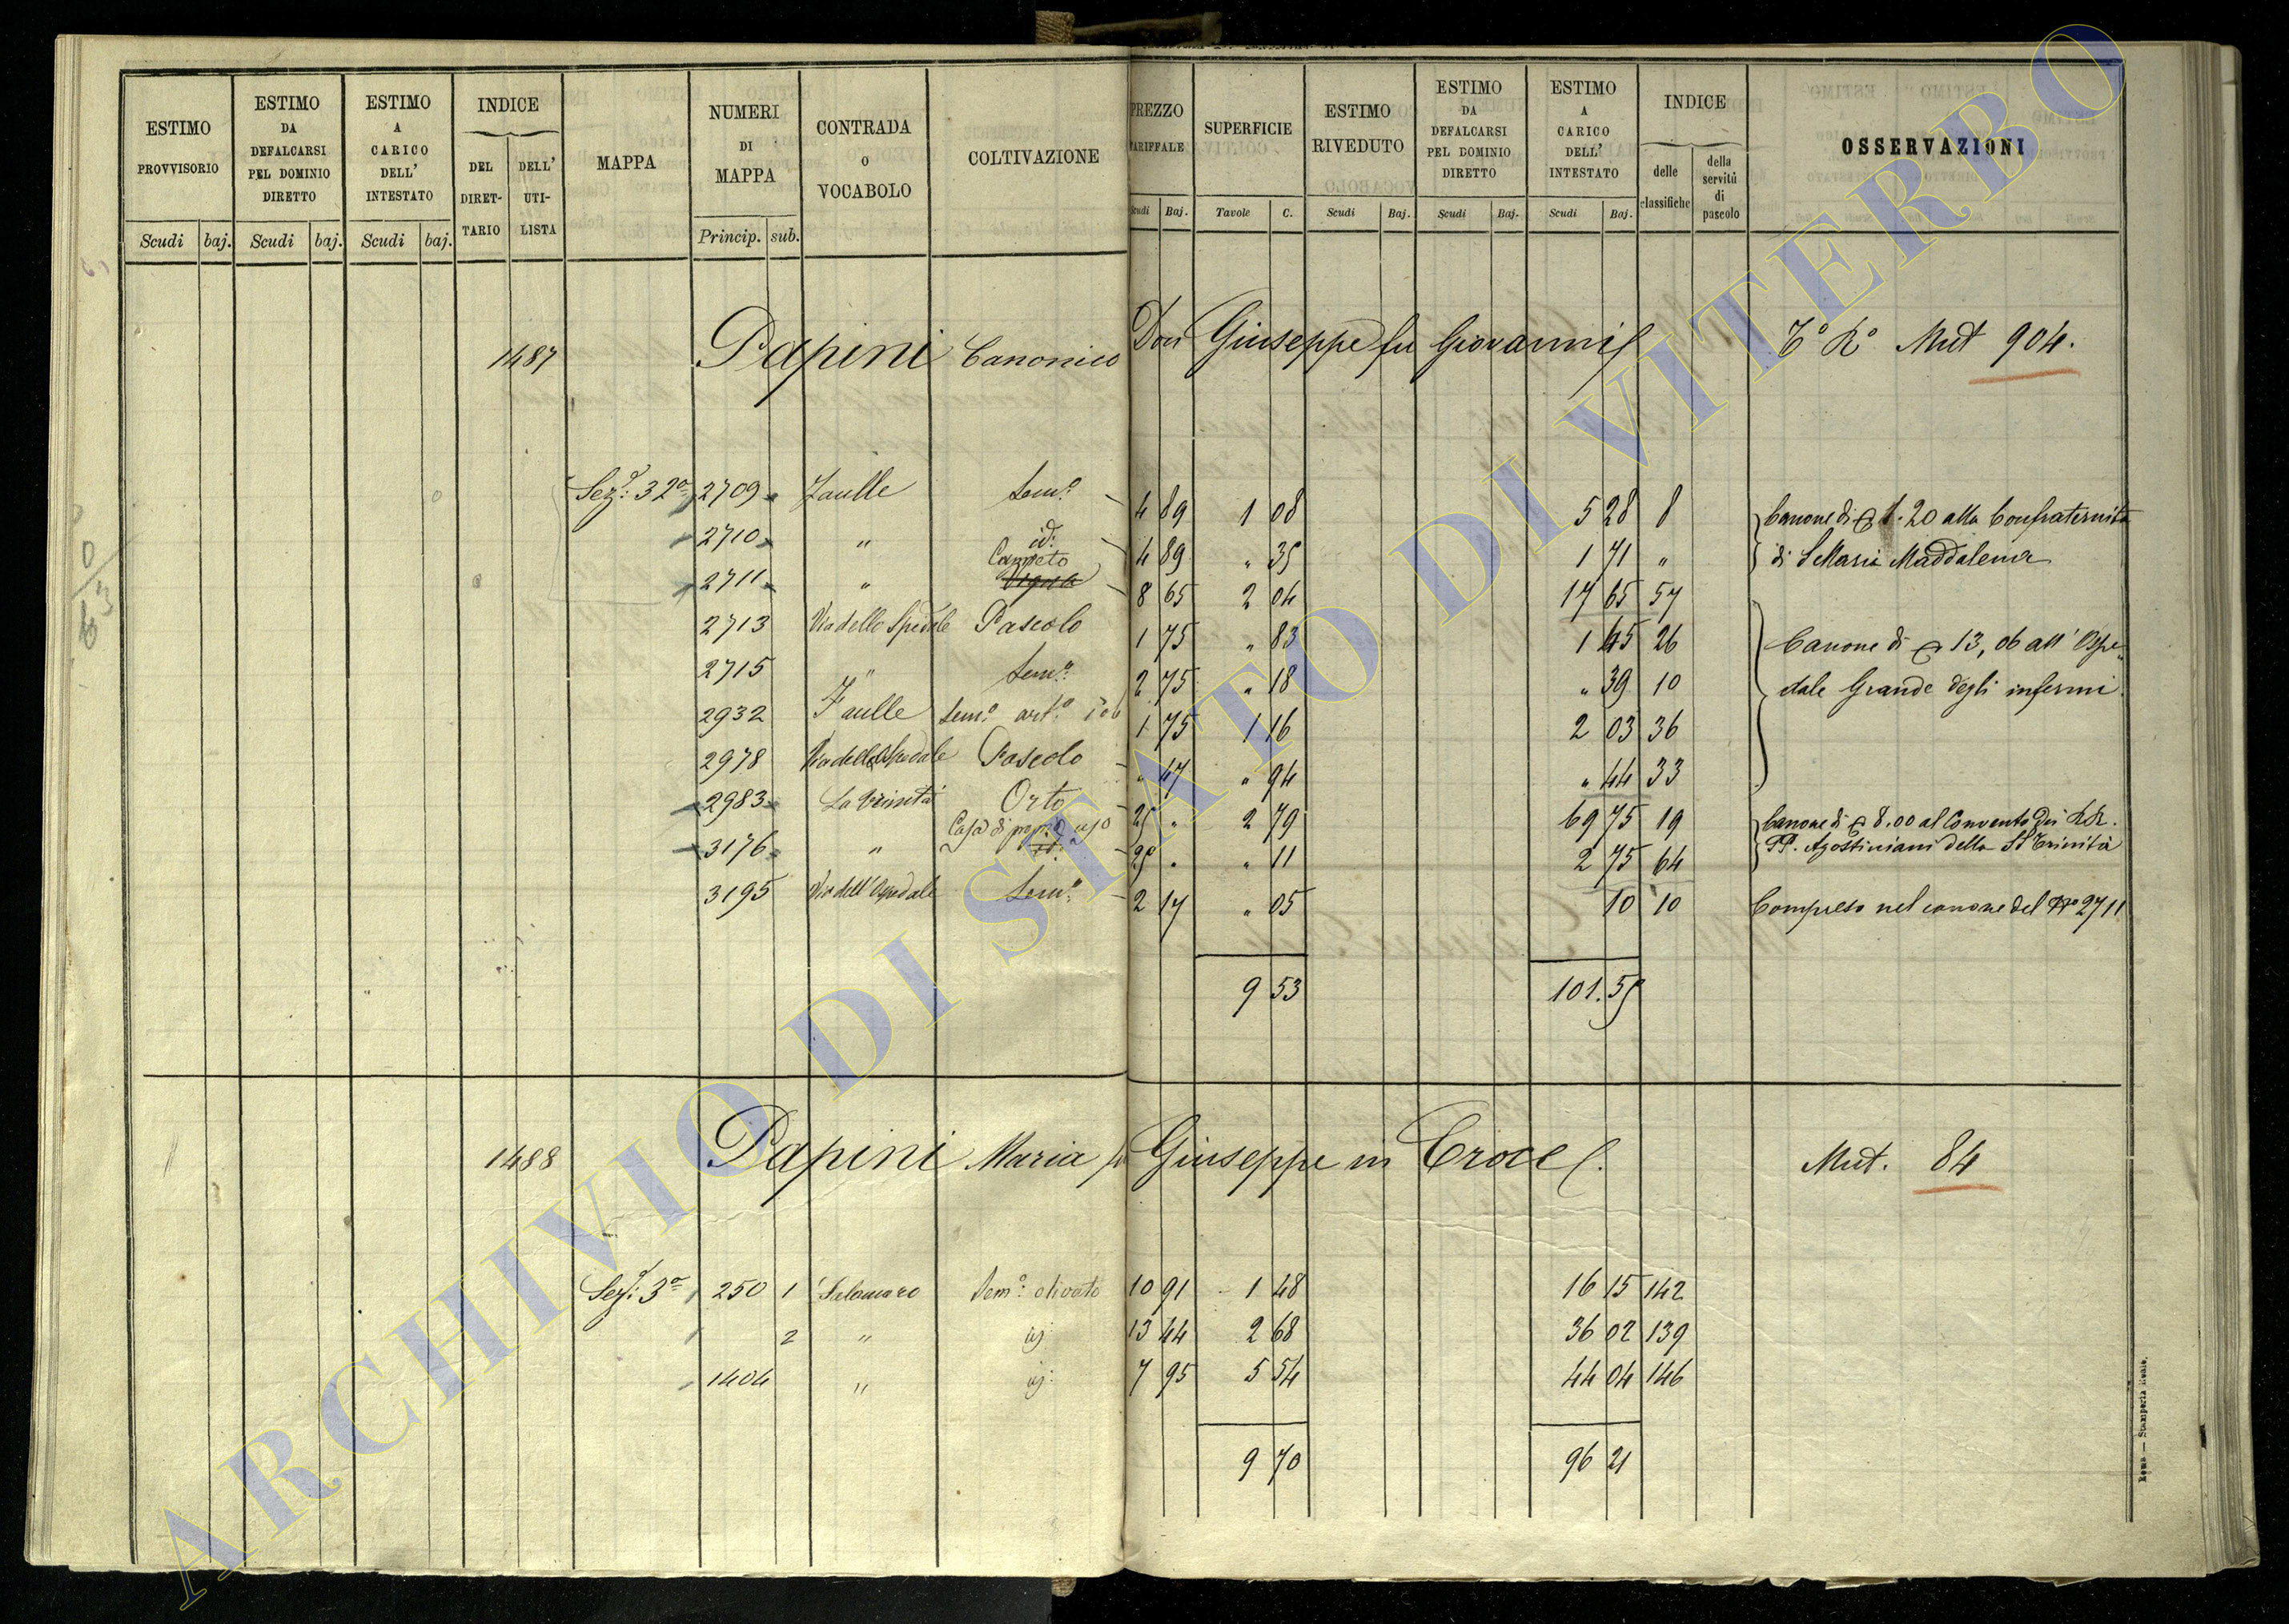 ESTIMO PROVVISORIO Scudi baj.
ESTIMO DA DEFALCARSI PEL DOMINIO DIRETTO Scudi baj.
ESTIMO A CARICO DELL' INTESTATO Scudi baj.
INDICE DEL DIRET- TARIO DELL' UTI- LISTA
MAPPA
NUMERI DI MAPPA Princip. sub.
CONTRADA O VOCABOLO
COLTIVAZIONE
PREZZO TARIFFALE Scudi Baj.
SUPERFICIE Tavole C.
ESTIMO RIVEDUTO Scudi Baj.
ESTIMO DA DEFALCARSI PEL DOMINIO DIRETTO Scudi Baj.
ESTIMO A CARICO DELL' INTESTATO Scudi Baj.
INDICE delle classifiche della servitù di pascolo
OSSERVAZIONI
1487 Papini Canonico Don Giuseppe fu Giovanni Mut 904.
Sez: 32a 2709 Faulle Sem:o 4 89 1 08 5 28 8 Canone di 1.20 alla Confraternita
2710 " id: 4 89 " 35 1 71 " di S Maria Maddalena
2711 " Canneto 8 65 2 04 17 65 57
2713 Via dello Spedale Pascolo 1 75 " 83 1 45 26 Canone di 13,06 all' Ospe-
2715 " Sem:o 2 75 " 18 " 39 10 dale Grande degli infermi.
2932 Faulle Sem:o art:o 1 75 1 16 2 03 36
2978 Via dello Spedale Pascolo " 47 " 94 " 44 33
2983 La Trinità Orto 25 " 2 79 69 75 19 Canone di 8.00 al Convento dei RR.
3176 " Casa di prop:o uso 25 . " 11 2 75 64 PP. Agostiniani della SS Trinità
3195 Via dell' Ospedale Sem:o 2 17 " 05 10 10 Compreso nel canone del No 2711
9 53 101.55
1488 Papini Maria fu Giuseppe in Croce Mut. 84
Sez: 3a 250 1 Sem:o olivato 10 91 1 48 16 15 142
2 " 13 44 2 68 36 02 139
1404 " 7 95 5 54 44 04 146
9 70 96 21
Roma — Stamperia Reale.
ARCHIVIO DI STATO DI VITERBO